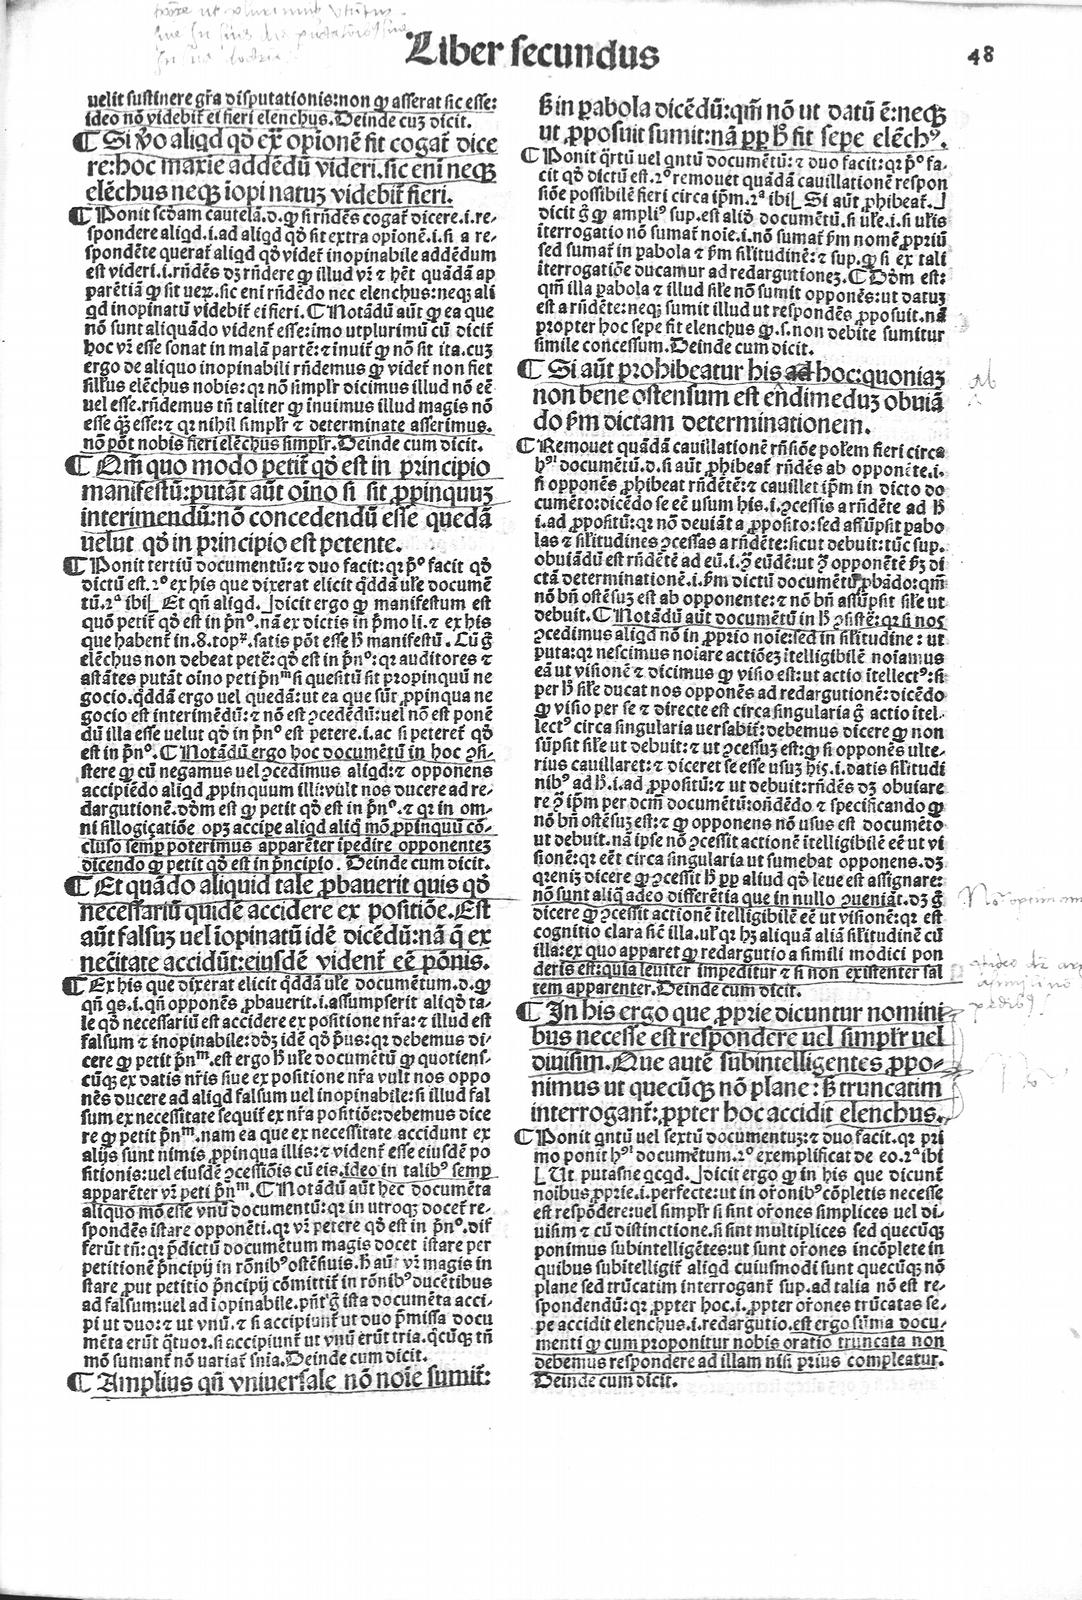 Liber secundus
48
uelit sustinere gr̃a disputationis:non ꝙ asserat sic esse:
ideo nõ videbit̃ ei fieri elenchus.Deinde cuꝫ dicit.
¶ Si ṽo aliqd qḋ ex̃ opiõnẽ fit cogat̃ dice
re:hoc maxĩe addẽdũ videri.sic enĩ neqꝫ
elẽchus neqꝫ ĩopinatuꝫ videbit̃ fieri.
¶ Ponit scḋam cautelã.d.ꝙ si rñdẽs cogat̃ dicere.i.re-
spondere aliqd.i.ad aliqd qḋ sit extra opiõnẽ.i.si a re-
spondẽte querat̃ aliqd qḋ videt̃ inopinabile addẽdum
est videri.i.rñdẽs dꝫ rñdere ꝙ illud vr̃ ⁊ hẽt quãdã ap
parẽtiã ꝙ sit ueꝝ.sic enĩ rñdẽdo nec elenchus:neqꝫ ali
qd inopinatũ videbit̃ ei fieri.¶ Notãdũ aũt ꝙ ea que
nõ sunt aliquãdo vident̃ esse:imo utplurimũ cũ dicit̃
hoc vr̃ esse sonat in malã partẽ:⁊ ĩnuit̃ ꝙ nõ sit ita.cuꝫ
ergo de aliquo inopinabili rñdemus ꝙ videt̃ non fiet
silĩus elẽchus nobis:qr nõ simplr̃ dicimus illud nõ eẽ
uel esse.rñdemus tñ taliter ꝙ ĩnuimus illud magis nõ
esse ꝙꝫ esse:⁊ qr nihil simplr̃ ⁊ determinate asserimus.
nõ põt nobis fieri elẽchus simplr̃.Deinde cum dicit.
¶ Qm̃ quo modo petit̃ qḋ est in principio
manifestũ:putãt aũt oĩno si sit ꝓpinquuꝫ
interimendũ:nõ concedendũ esse quedã
uelut qḋ in principio est petente.
¶ Ponit tertiũ documẽtũ:⁊ duo facit:qr p̃º facit qḋ
dictũ est.2º ex his que dixerat elicit qḋdã ul̃e documẽ
tũ.2ª ibi⌊ Et qñ aliqd.⌋dicit ergo ꝙ manifestum est
quõ petit̃ qḋ est in p̃nº.nã ex dictis in p̃mo li.⁊ ex his
que habent̃ in.8.topꝝ.satis põt esse ħ manifestũ. Cũ g̃
elẽchus non debeat petẽ:qḋ est in p̃nº:qr auditores ⁊
astãtes putãt oĩno peti p̃nᵐ si quesitũ sit propinquũ ne
gocio.qḋdã ergo uel quedã:ut ea que sũt ꝓpinqua ne
gocio est interimẽdũ:⁊ nõ est ꝯcedẽdũ:uel nõ est ponẽ
dũ illa esse uelut qḋ in p̃nº est petere.i.ac si peteret̃ qḋ
est in p̃nº.¶ Notãdũ ergo hoc documẽtũ in hoc ꝯsi-
stere ꝙ cũ negamus uel ꝯcedimus aliqd:⁊ opponens
accipiẽdo aliqd ꝓpinquum illi:vult nos ducere ad re-
dargutionẽ.dõm est ꝙ petit qḋ est in p̃nº.⁊ qr in om-
ni sillogiçatiõe opꝫ accipe aliqd aliq̃ mõ ꝓpinquũ cõ-
cluso semꝑ poterimus apparẽter ĩpedire opponenteꝫ
dicendo ꝙ petit qḋ est in p̃ncipio. Deinde cum dicit.
¶ Et quãdo aliquid tale ꝓbauerit quis qḋ
necessariũ quidẽ accidere ex positiõe.Est
aũt falsuꝫ uel ĩopinatũ idẽ dicẽdũ:nã q̃ ex
nec̃itate accidũt:eiusdẽ vident̃ eẽ põnis.
¶ Ex his que dixerat elicit qḋdã ul̃e documẽtum.d.ꝙ
qñ qs.i.qñ opponẽs ꝓbauerit.i.assumpserit aliqḋ ta-
le qḋ necessariũ est accidere ex positione nr̃a:⁊ illud est
falsum ⁊ ĩnopinabile:dꝫ idẽ qḋ p̃us:qr debemus di-
cere ꝙ petit p̃nᵐ.est ergo ħ ul̃e documẽtũ ꝙ quotiens-
cũqꝫ ex datis nr̃is siue ex positione nr̃a vult nos oppo
nẽs ducere ad aliqd falsum uel inopinabile:si illud fal
sum ex necessitate sequit̃ ex nr̃a positiõe:debemus dice
re ꝙ petit p̃nᵐ.nam ea que ex necessitate accidunt ex
alijs sunt nimis ꝓpinqua illis:⁊ vident̃ esse eiusdẽ po
sitionis:uel eiusdẽ ꝯcessiõis cũ eis.ideo in talibꝰ semꝑ
apparẽter vr̃ peti p̃nᵐ.¶ Notãdũ aũt hec documẽta
aliquo mõ esse vnũ documẽtũ:qr in utroqꝫ docet̃ re-
spondẽs ĩstare opponẽti.qr vr̃ petere qḋ est in p̃nº.dif
ferũt tñ:qr p̃dictũ documẽtum magis docet ĩstare per
petitionẽ p̃ncipij in rõnibꝰ ostẽsiuis.ħ aũt vr̃ magis in
stare ꝓut petitio p̃ncipij cõmittit̃ in rõnibꝰ ducẽtibus
ad falsum:uel ad ĩopinabile.pñt g̃ ista documẽta acci-
pi ut duo:⁊ ut vnũ.⁊ si accipiunt̃ ut duo p̃missa docu
mẽta erũt q̃tuor.si accipiunt̃ ut vnũ erũt tria.qcũqꝫ tñ
mõ sumant̃ nõ uariat̃ snĩa.Deinde cum dicit.
¶ Amplius qñ vniuersale nõ noĩe sumit̃:
ħ in ꝑabola dicẽdũ:qm̃ nõ ut datũ ẽ:neqꝫ
ut ꝓposuit sumit:nã ꝓꝑ ħ fit sepe elẽchꝰ.
¶ Ponit q̃rtũ uel qntũ documẽtũ:⁊ duo facit:qr p̃º fa-
cit qḋ dictũ est.2º remouet quãdã cauillationẽ respon
siõe possibilẽ fieri circa ip̃m.2ª ibi⌊ Si aũt ꝓhibeat̃.⌋
dicit g̃ ꝙ ampliꝰ sup.est aliḋ documẽtũ.si ul̃e.i.si ul̃is
ĩterrogatio nõ sumat̃ noĩe.i.nõ sumat̃ p̃m nomẽ ꝓpriũ
sed sumat̃ in ꝑabola ⁊ p̃m silĩtudinẽ:⁊ sup.ꝙ si ex tali
ĩterrogatiõe ducamur ad redargutioneꝫ.¶ Dõm est:
qm̃ illa ꝑabola ⁊ illud sil̃e nõ sumit opponẽs:ut datuꝫ
est a rñdẽte:neqꝫ sumit illud ut respondẽs ꝓposuit.nã
propter hoc sepe fit elenchus ꝙ.s.non debite sumitur
simile concessum.Deinde cum dicit.
¶ Si aũt prohibeatur his ad hoc:quoniaꝫ
non bene ostensum est eñdimeduꝫ obuiã
do p̃m dictam determinationem.
ab
¶ Remouet quãdã cauillationẽ rñsiõe polem fieri circa
hꝰⁱ documẽtũ.d.si aũt ꝓhibeat̃ rñdẽs ab opponẽte.i.
si opponẽs ꝓhibeat rñdẽtẽ:⁊ cauillet ip̃m in dicto do
cumẽto:dicẽdo se eẽ usum his.i.ꝯcessis a rñdẽte ad ħ
i.ad ꝓpositũ:qr nõ deuiãt a ꝓposito:sed assũpsit ꝑabo
las ⁊ silĩtudines ꝯcessas a rñdẽte:sicut debuit:tũc sup.
obuiãdũ est rñdẽtẽ ad eũ.i.ꝯ̃ eũdẽ:ut ꝯ̃ opponẽtẽ p̃ꝫ di
ctã determinationẽ.i.p̃m dictũ documẽtũ ꝓbãdo:qm̃
nõ bñ ostẽsuꝫ est ab opponente:⁊ nõ bñ assũpsit sil̃e ut
debuit.¶ Notãdũ aũt documẽtũ in ħ ꝯsistẽ:qr si nos
ꝯcedimus aliqd nõ in ꝓprio noĩe:sed in silĩtudine: ut
puta:qr nescimus noĩare actiõeꝫ ĩtelligibilẽ noĩamus
eã ut visionẽ ⁊ dicimus ꝙ visio est:ut actio ĩtellectꝰ:si
per ħ sil̃e ducat nos opponẽs ad redargutionẽ:dicẽdo
ꝙ visio per se ⁊ directe est circa singularia g̃ actio ĩtel-
lectꝰ circa singularia versabit̃:debemus dicere ꝙ non
sũpsit sil̃e ut debuit:⁊ ut ꝯcessuꝫ est:ꝙ si opponẽs ulte-
rius cauillaret̃:⁊ diceret se esse usuꝫ his.i.datis silĩtudi
nibꝰ ad ħ.i.ad ꝓpositũ:⁊ ut debuit:rñdẽs dꝫ obuiare
re ꝯ̃ ip̃m per dc̃m documẽtũ:oñdẽdo ⁊ specificando ꝙ
nõ bñ ostẽsuꝫ est:⁊ ꝙ opponens nõ usus est documẽto
ut debuit.nã ip̃se nõ ꝯcessit actionẽ ĩtelligibilẽ eẽ ut vi
sionẽ:qr eẽt circa singularia ut sumebat opponens.dꝫ
q̃reniꝫ dicere ꝙ ꝯcessit ħ ꝓꝑ aliud qḋ leue est assignare:
nõ sunt aliq̃ adeo differẽtia que in nullo ꝯueniãt.dꝫ g̃
dicere ꝙ ꝯcessit actionẽ ĩtelligibilẽ eẽ ut visionẽ:qr est
cognitio clara sic̃ illa.ul̃ qr hꝫ aliquã aliã silĩtudinẽ cũ
illa:ex quo apparet ꝙ redargutio a simili modici pon
deris est:quia leuiter impeditur ⁊ si non existenter sal
tem apparenter.Deinde cum dicit.
¶ In his ergo que ꝓprie dicuntur nomini
bus necesse est respondere uel simplr̃ uel
diuisim.Que autẽ subintelligentes ꝓpo-
nimus ut quecũqꝫ nõ plane:ħ truncatim
interrogant̃:ꝓpter hoc accidit elenchus.
¶ Ponit qntũ uel sextũ documentuꝫ:⁊ duo facit.qr pri
mo ponit hꝰⁱ documẽtum.2º exemplificat de eo.2ª ibi
⌊ Ut putasne qcqd.⌋dicit ergo ꝙ in his que dicunt̃
noĩbus ꝓprie.i.perfecte:ut in or̃onibꝰ cõpletis necesse
est respõdere:uel simplr̃ si sint or̃ones simplices uel di-
uisim ⁊ cũ distinctione.si sint multiplices sed quecũqꝫ
ponimus subintelligẽtes:ut sunt or̃ones incõplete in
quibus subĩtelligit̃ aliqd cuiusmodi sunt quecũqꝫ nõ
plane sed trũcatim interrogant̃ sup.ad talia nõ est re-
spondendũ:qr ꝓpter hoc.i.ꝓpter or̃ones trũcatas se-
pe accidit elenchus.i.redargutio.est ergo sũma docu-
menti ꝙ cum proponitur nobis oratio truncata non
debemus respondere ad illam nisi prius compleatur.
Deinde cum dicit.